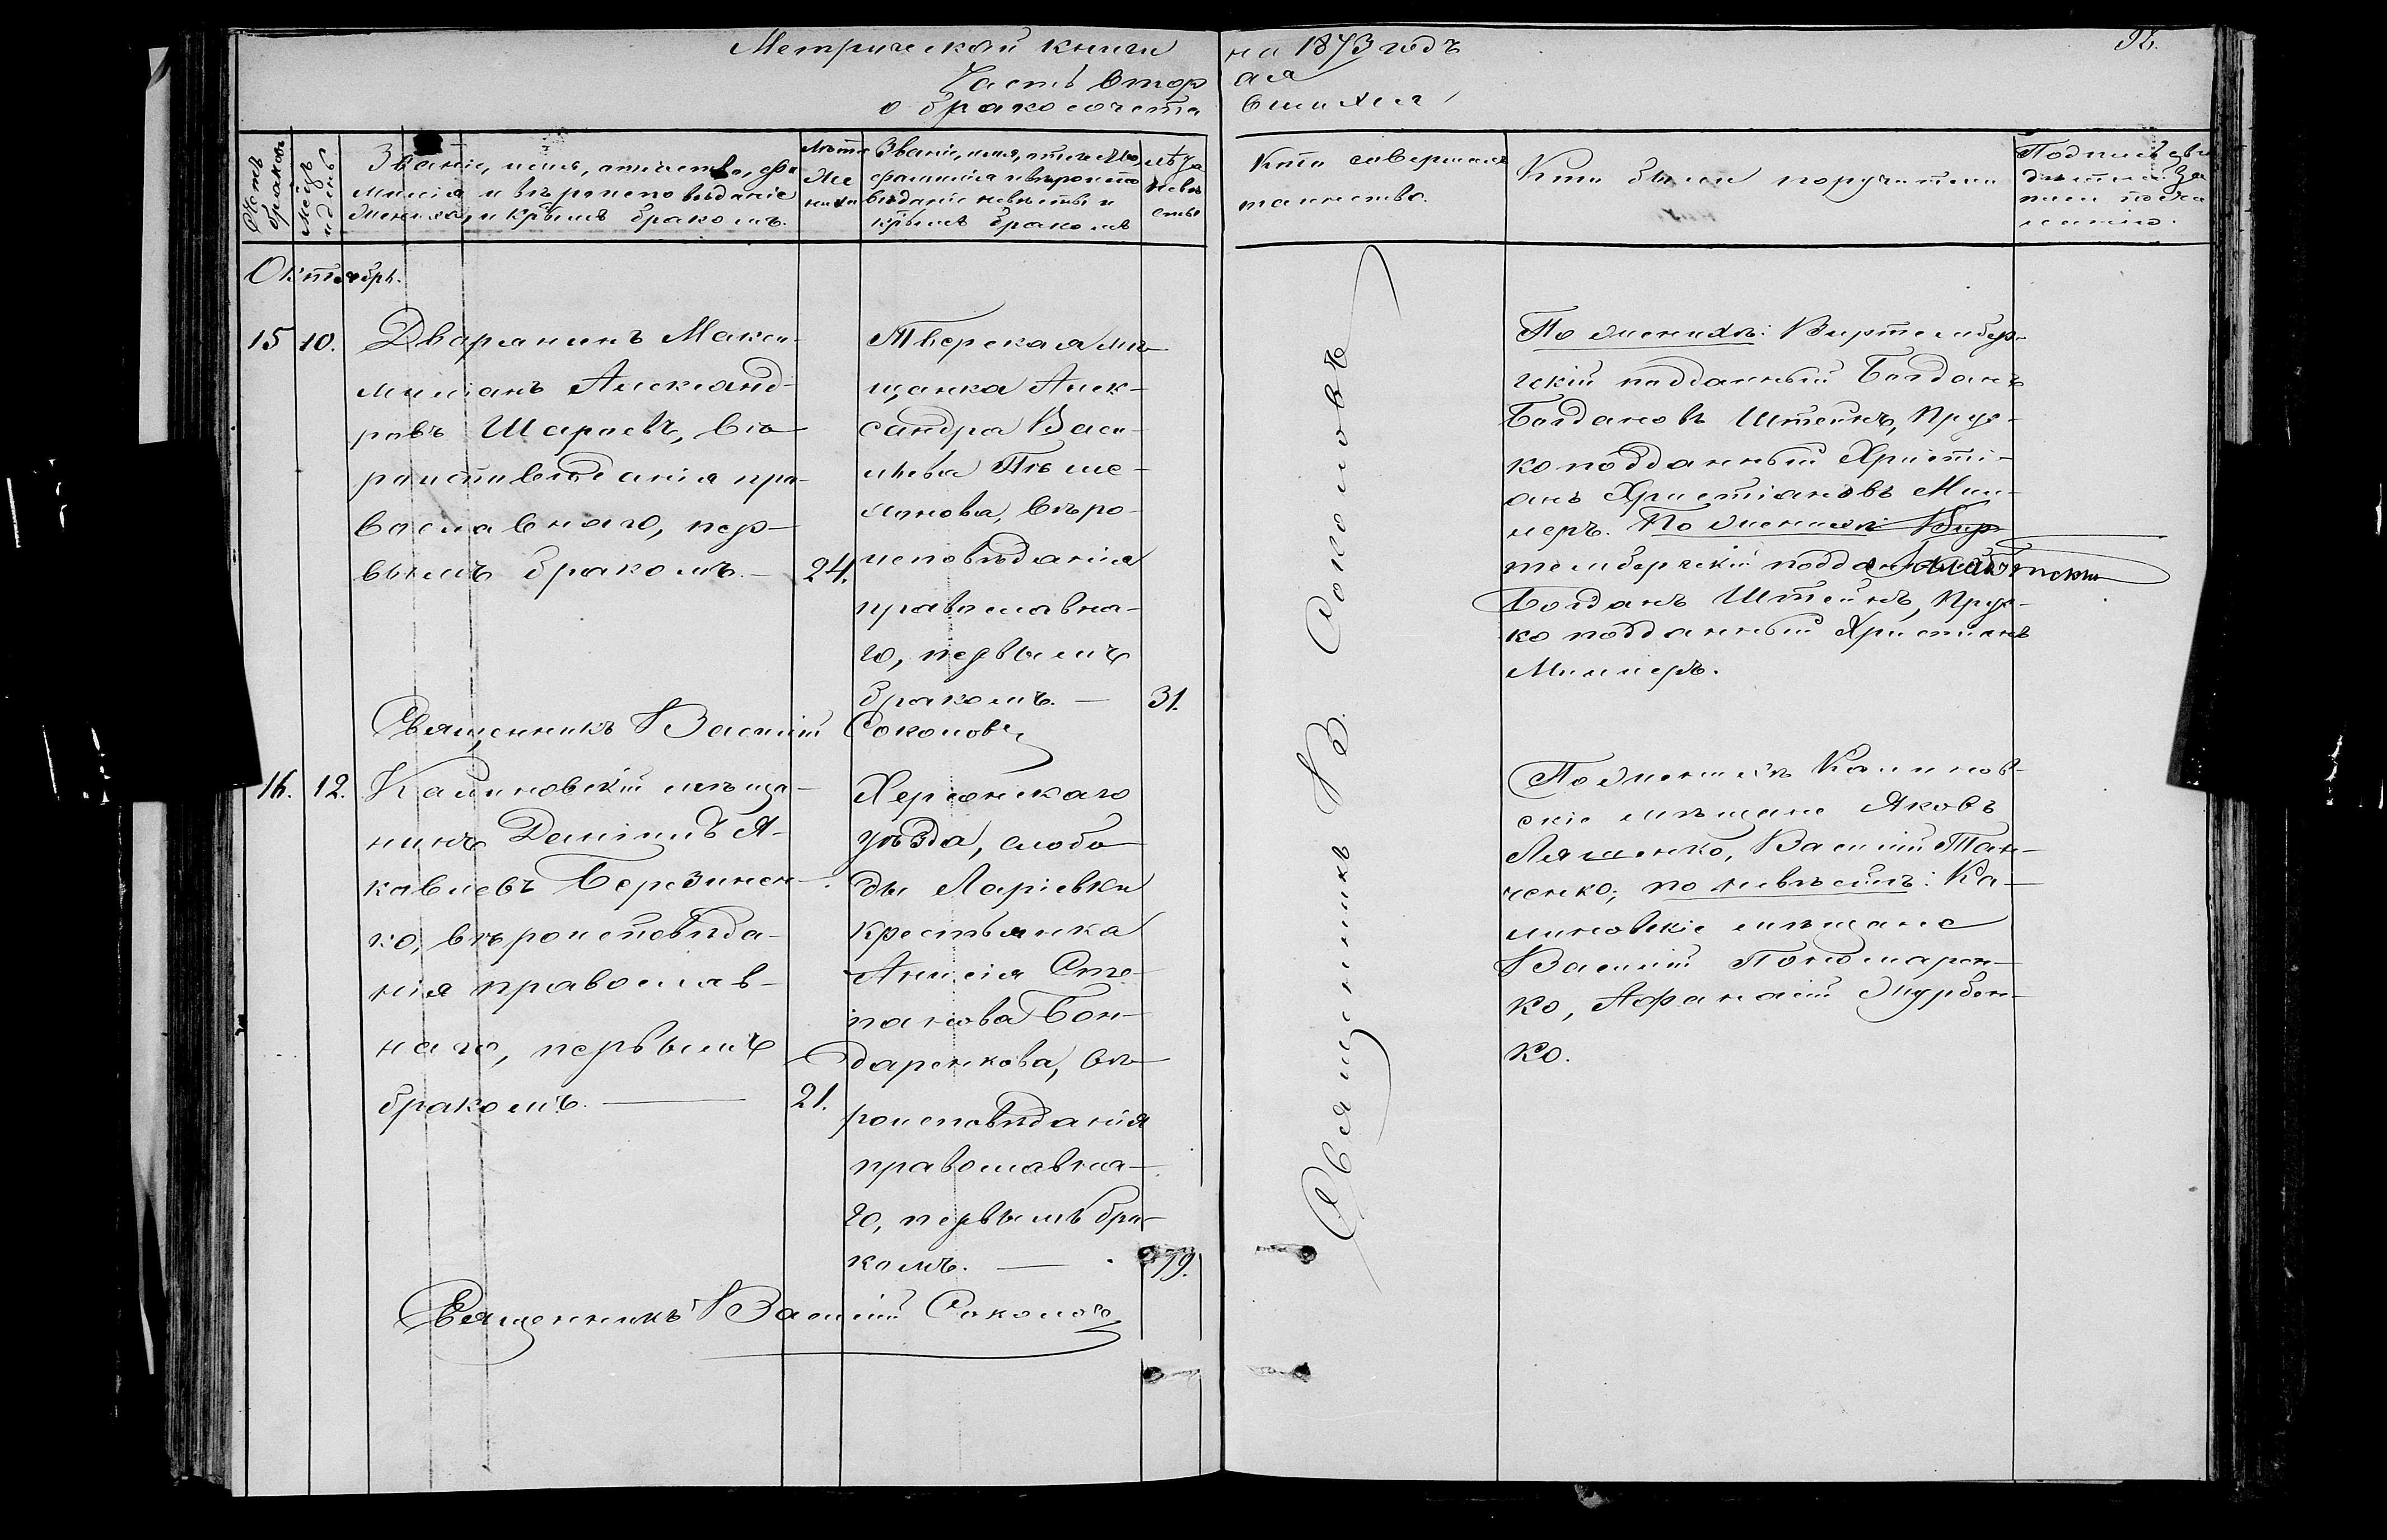 Метрической книги на 1873 годъ
Часть вторая
о бракосочетавшихся
92.
Счетъ браковъ
Мѣсяцъ и день
Званіе, имя, отчество, фа-
милія и вѣроисповѣданіе
жениха, и которымъ бракомъ.
Лѣта
же-
ниха
Званіе, имя, отчество,
фамилія и вѣроиспо-
вѣданіе невѣсты и
которымъ бракомъ
лѣта
невѣ-
сты
Кто совершалъ
таинство.
Кто были поручители
Подпись сви-
дѣтелей за-
писи по жела-
нію.
Октябрь.
15
10.
Дворянинъ Макси-
миліанъ Александ-
ровъ Шараевъ, вѣ-
роисповѣданія пра-
вославнаго, пер-
вымъ бракомъ. —
24.
Тверская мѣ-
щанка Алек-
сандра Васи-
льева
лонова, вѣро-
исповѣданія
православна-
го, первымъ
бракомъ. —
31.
Священникъ В. Соколовъ
По женихѣ: Виртембер-
гскій подданный Богданъ
Богдановъ Штейнъ, Прус-
ко подданный Христі-
анъ Христіановъ Мил-
леръ. По женихѣ Вир-
тембергскій подданный
Богданъ Штейнъ, Прус-
ко подданный Христіанъ
Миллеръ.
Священникъ Василій Соколовъ
16.
12.
Калиновскій мѣща-
нинъ Даніилъ Я-
ковлевъ Березинен-
ко, вѣроисповѣда-
нія православ-
наго, первымъ
бракомъ. —
21.
Херсонскаго
уѣзда, слобо-
ды Ларіевки
крестьянка
Анисія Сте-
панова Бон-
даренкова, вѣ-
роисповѣданія
православна-
го, первымъ бра-
комъ. —
19.
По женихѣ Калинов-
скіе мѣщане Яковъ
Ляшенко, Василій Тан-
ченко; по невѣстѣ: Ка-
линовскіе мѣщане
Василій Пономарен-
ко, Афанасій Журбен-
ко.
Священникъ Василій Соколовъ